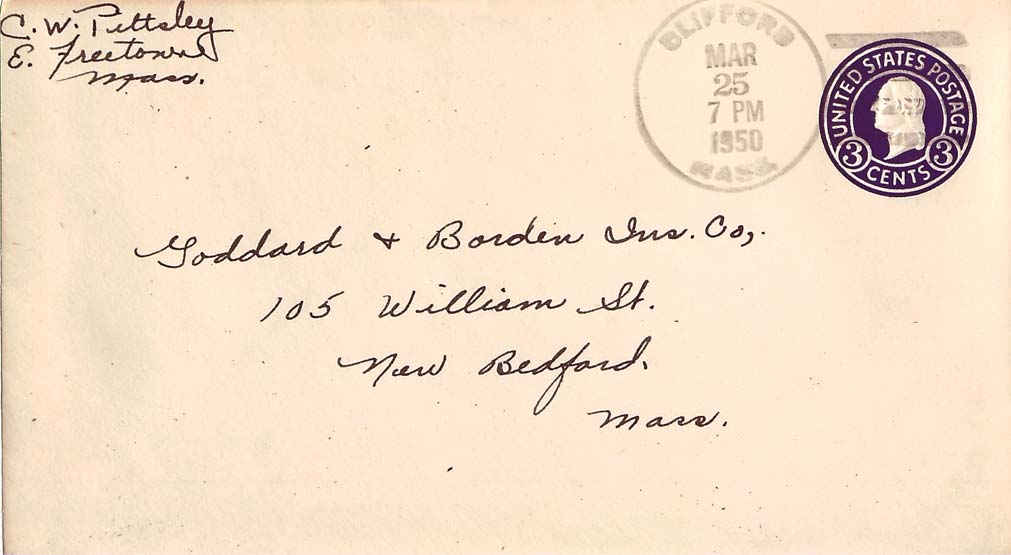 C. W. Pittsley
E. Freetown
Mass.
CLIFFORD
MAR
25
7 PM
1950
MASS.
UNITED STATES POSTAGE
3 CENTS 3
Goddard & Borden Ins. Co,.
105 William St.
New Bedford.
Mass.